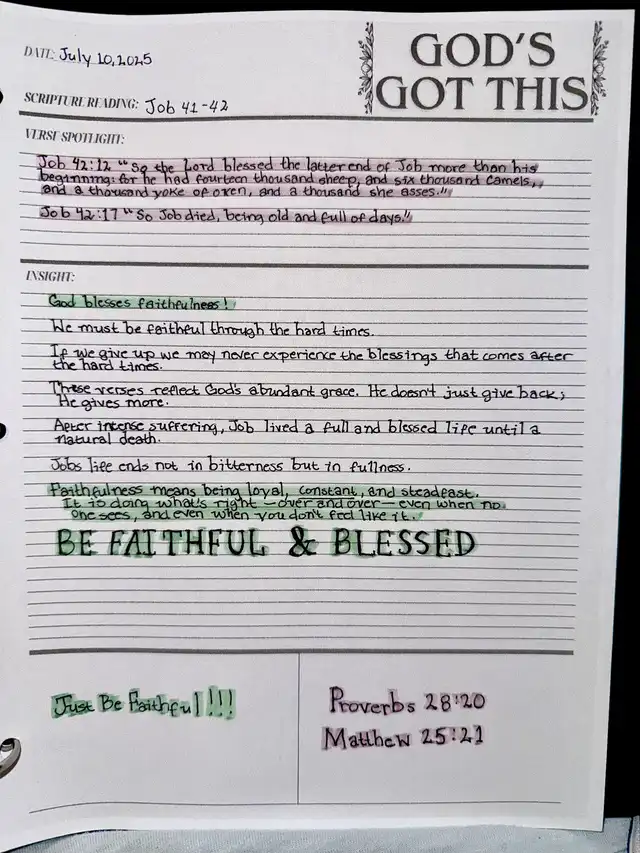 DATE: July 10, 2025
GOD'S
GOT THIS
SCRIPTURE READING: Job 41-42
VERSE SPOTLIGHT:
Job 42:12 "So the Lord blessed the latter end of Job more than his
beginning: for he had fourteen thousand sheep, and six thousand camels,
and a thousand yoke of oxen, and a thousand she asses."
Job 42:17 "So Job died, being old and full of days."
INSIGHT:
God blesses faithfulness!
We must be faithful through the hard times.
If we give up we may never experience the blessings that comes after
the hard times.
These verses reflect God's abundant grace. He doesn't just give back;
He gives more.
After intense suffering, Job lived a full and blessed life until a
natural death.
Jobs life ends not in bitterness but in fullness.
Faithfulness means being loyal, constant, and steadfast.
It is doing what's right - over and over - even when no
one sees, and even when you don't feel like it.
BE FAITHFUL & BLESSED
Just Be Faithful!!!
Proverbs 28:20
Matthew 25:21